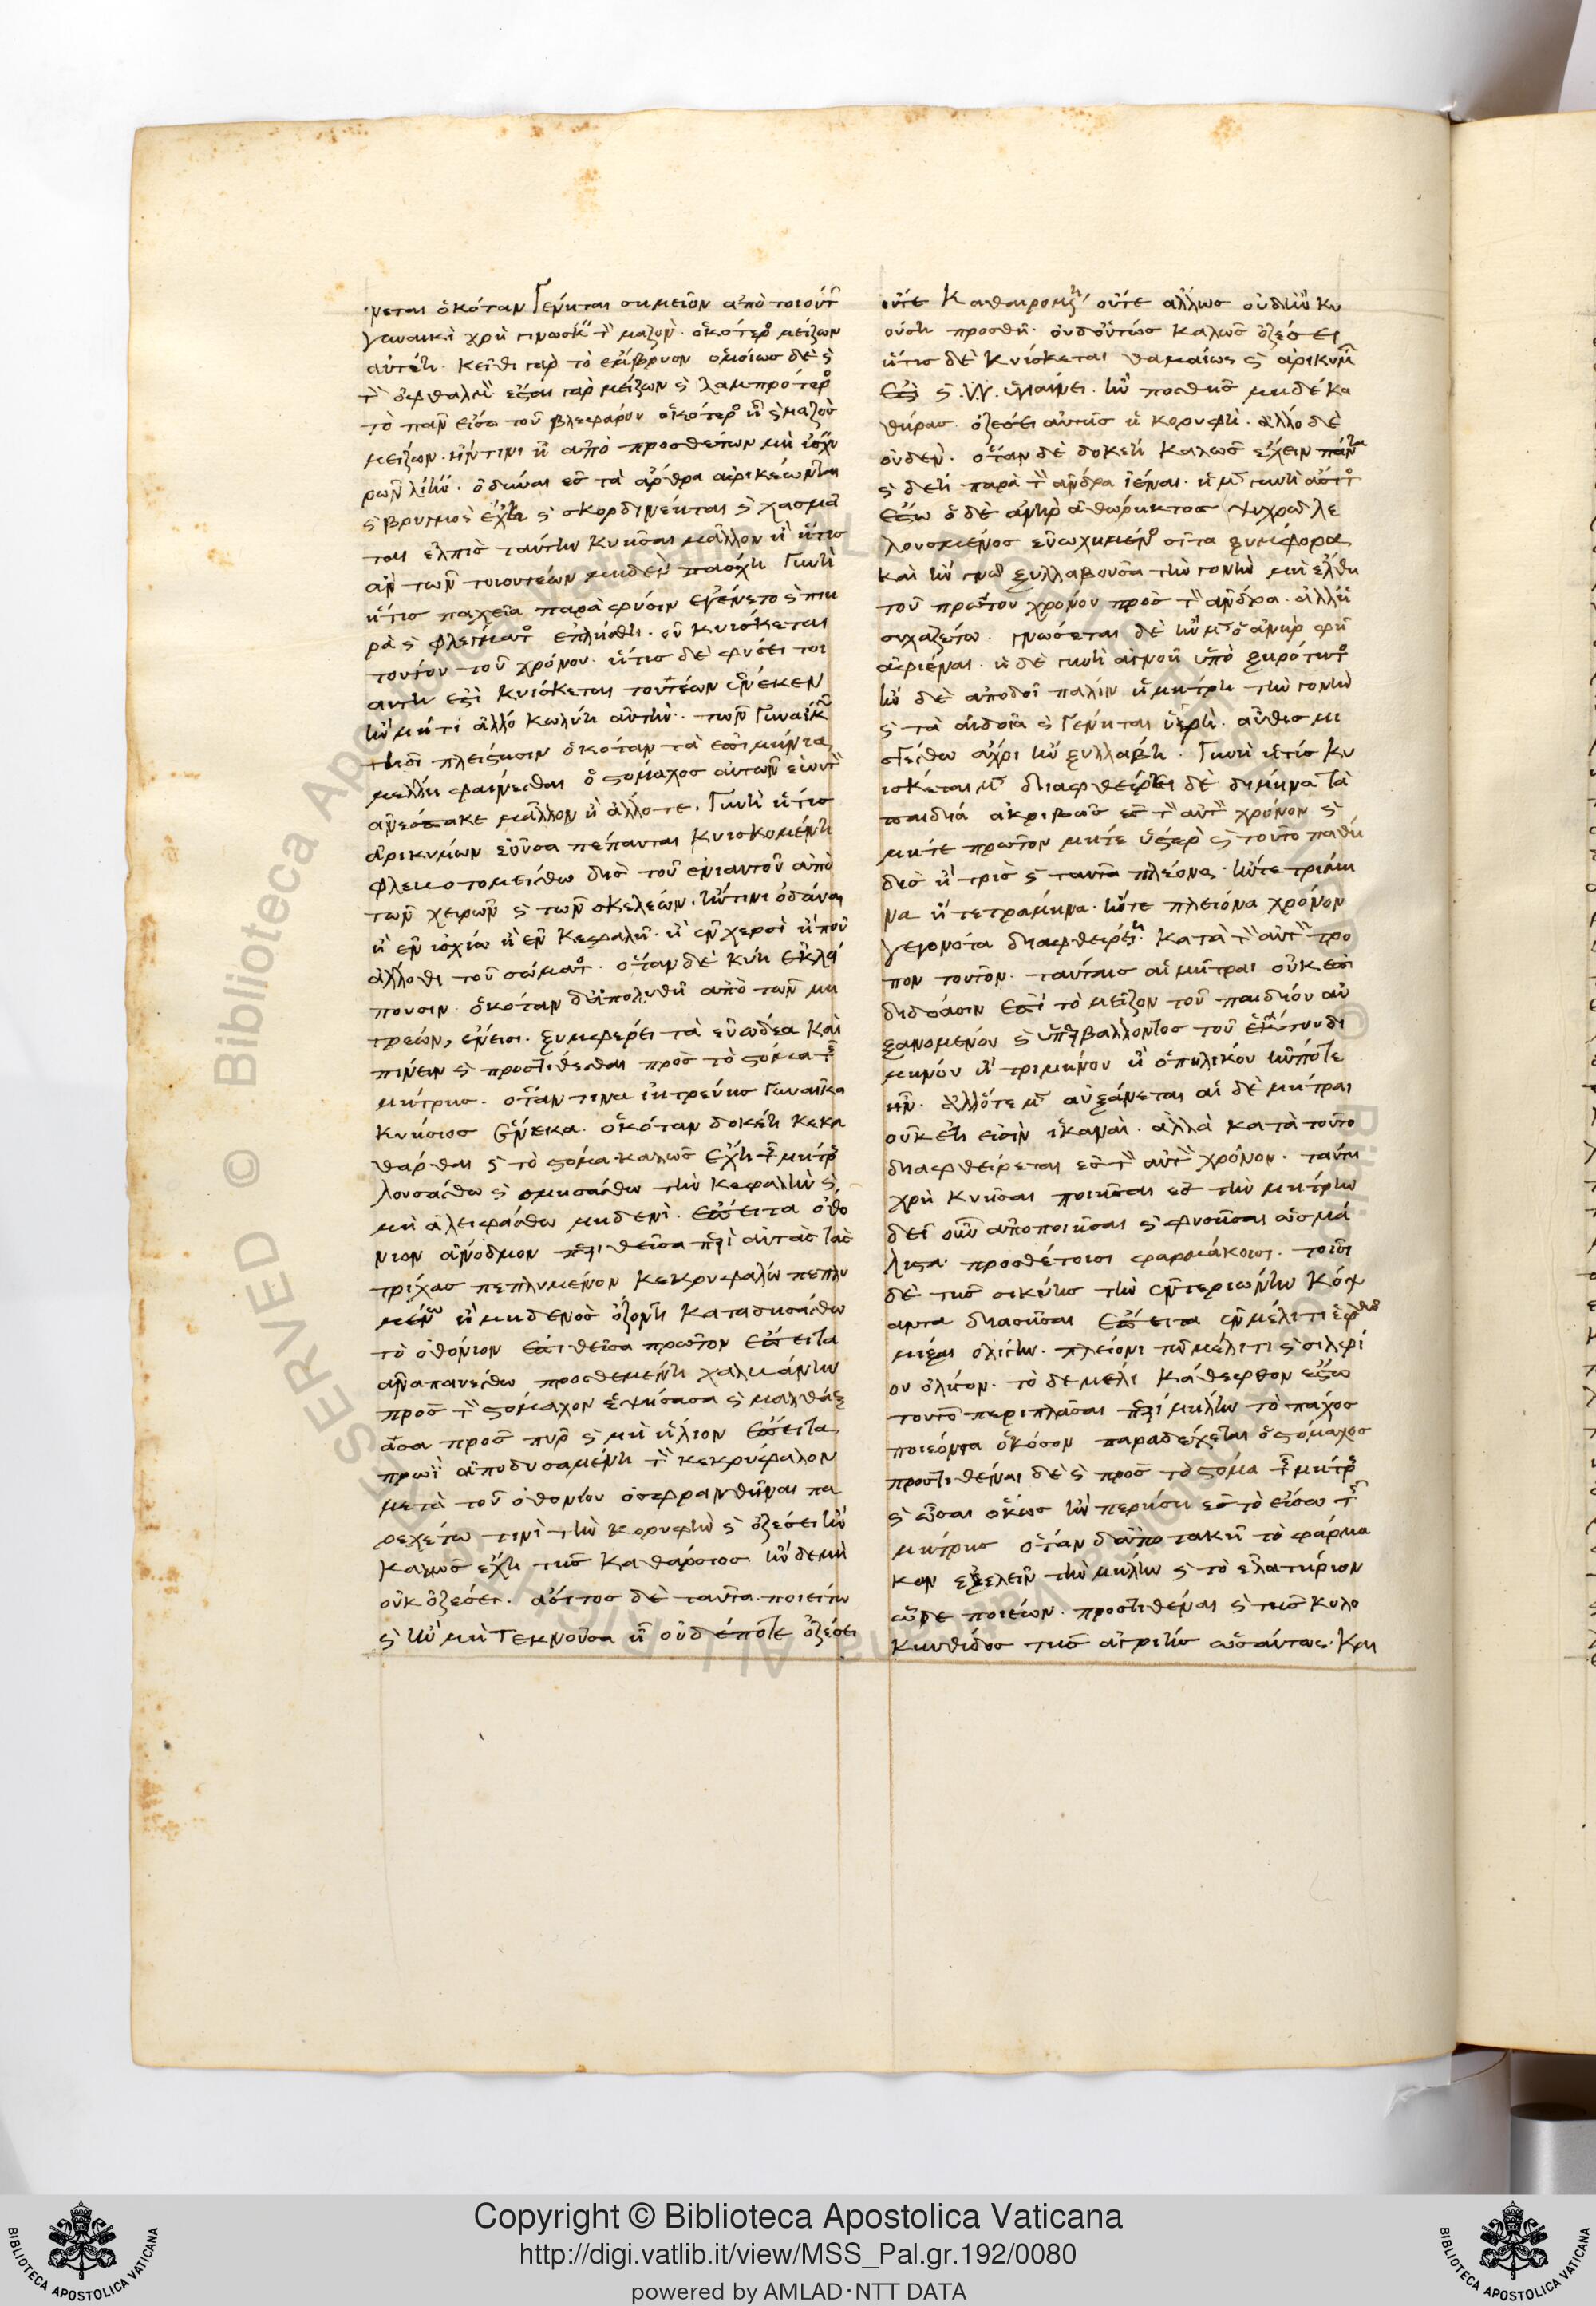 νεται ὁκόταν γένηται σημεῖον ἀπὸ τοιούτ
γυναικὶ χρὴ γινώσκ τ μαζὸν. ὁκότερ μείζων
αὐτέη. κεῖθι γὰρ τὸ ἔμβρυον ὁμοίως δὲ ϛ
τ ὀφθαλμ ἔσται γὰρ μείζων ϛ λαμπρότερ
τὸ πᾶν εἴσω τοῦ βλεφάρου ὁκότερ ἢ ϛ μαζὸσ
μείζων. ἥντινι ἢ ἀπὸ προσθέτων μὴ ἰσχυ
ρῶν ὀδύναι ἐσ τὰ ἄρθρα ἀφικέωνται
ϛ βρυγμὸσ ἔχῃ ϛ σκορδινέηται ϛ χασμᾶ
ται ἐλπὶσ ταύτην κυῆσαι μᾶλλον ἢ ἥτισ
ἂν τῶν τοιουτέων μηδὲν πάσχῃ γυνὴ
ἥτισ παχεῖα παρὰ φύσιν ἐγένετο ϛ πιη
ρὰ ϛ φλέγματ ἐπλήσθη. οὐ κυίσκεται
τουτον τοῦ χρόνου. ἥτισ δὲ φύσει τοι
αυτη ἐστὶ κυίσκεται τουτέων ἕνεκεν
ἢν μή τι ἄλλο κωλύῃ αὐτὴν. τῶν γυναικ
τῇσι πλείστησιν ὁκόταν τὰ ἐπιμήνια
μέλλῃ φαίνεσθαι ὁ στόμαχος αὐτῶν
ἀνέσπακε μᾶλλον ἢ ἄλλοτε. γυνὴ ἥτισ
ἀρικύμων ἐοῦσα πέπαυται κυισκομένη
φλεβοτομείσθω δὶσ τοῦ ἐνιαυτοῦ ἀπὸ
τῶν χειρῶν ϛ τῶν σκελέων. ἥτινι ὀδύναι
ἢ ἐν ἰσχίω ἢ ἐν κεφαλῇ. ἢ ἐν χερσὶ ἢ που
ἄλλοθι τοῦ σώματ. ὅταν δὲ κύῃ ἐκλεί
πουσιν. ὁκόταν δ' ἀπολυθῇ ἀπὸ τῶν μη
τρέων, ἔνεισι. ξυμφέρει τὰ εὐώδεα καὶ
πίνειν ϛ προστίθεσθαι πρὸσ τὸ στόμα τ
μήτρησ. ὅταν τινα ἰητρεύῃσ γυναῖκα
κυήσιοσ εἵνεκα. ὁκόταν δοκέῃ κεκα
θάρθαι ϛ τὸ στόμα καλῶσ ἔχῃ τ μητρ
λουσάσθω ϛ σμησάσθω τὴν κεφαλὴν ϛ
μὴ ἀλειφάσθω μηδενὶ. ἔπειτα ὀθό
νιον ἄνοδμον περιθεῖσα περὶ αὐτὰσ τὰσ
τρίχασ πεπλυμένον κεκρυφάλω πεπλυ
μέν ἢ μηδενὸσ ὄζοντι καταδησάσθω
τὸ ὀθόνιον ἐπιθεῖσα πρῶτον ἔπειτα
ἀναπαυέσθω προσθεμένη χαλβάνην
πρὸσ τ στόμαχον ἑψήσασα ϛ μαλθάξ
ασα πρὸσ πυρ ϛ μὴ ἥλιον ἔπειτα
πρωῒ ἀποδυσαμένη τ κεκρύφαλον
μετὰ τοῦ ὀθονίου ὀσφρανθῆναι πα
ρεχέτω τινὶ τὴν κορυφὴν ϛ ὀζέσει ἢν
καλῶσ ἔχῃ τῆσ καθάρσιοσ ἢν δὲ μὴ
οὐκ ὀζέσει. ἄσιτος δὲ ταῦτα ποιείτω
ϛ ἢν μὴ τεκνοῦσα ἢ οὐδέποτε ὀζέσει
οὔτε καθαιρομέν οὔτε ἄλλωσ οὐδ' ἢν κυ
ούσῃ προσθῇ. οὐδ' οὕτωσ καλῶσ ὀζέσει
ἥτισ δὲ κυίσκεται θαμαίως ϛ ἀρικύμ
ἐστὶ ϛ ὑγιαίνει. ἢν προσθῇσ μηδὲ κα
θήρασ. ὀζέσει αὐτῆσ ἡ κορυφὴ. ἄλλο δὲ
οὐδὲν. ὅταν δὲ δοκέῃ καλῶσ ἔχειν πάντα
ϛ δέῃ παρὰ τ ἄνδρα ἰέναι. ἡ μ γυνὴ ἄσιτ
ἔστω ὁ δὲ ἀνὴρ ἀθώρηκτοσ ψυχρῶ λε
λουσμένοσ εὐωχημέν σῖτα ξυμφορα
καὶ ἢν γνῷ ξυλλαβοῦσα τὴν γονὴν μὴ ἔλθῃ
τοῦ πρώτου χρόνου πρὸσ τ ἄνδρα. ἀλλ' ἡ
συχαζέτω. γνώσεται δὲ ἢν μ ὁ ἀνὴρ φῇ
ἀφιέναι. ἡ δὲ γυνὴ ἀγνοῇ ὑπὸ ξηρότητ
ἢν δὲ ἀποδοῖ πάλιν ἡ μήτρη τὴν γονὴν
ϛ τὰ αἰδοῖα ϛ γένηται ὑγρὴ. αὖθισ μι
σγέσθω ἄχρι ἢν ξυλλάβῃ. γυνὴ ἥτισ κυ
ισκεται μ διαφθείρει δὲ δίμηνα τὰ
παιδία ἀκριβῶσ ἐσ τ αὐτ χρόνον ϛ
μήτε πρῶτον μήτε ὕστερ ϛ τοῦτο πάθῃ
δὶσ ἢ τρὶσ ϛ ταυτα πλέονα. ἤντε τρίμη
να ἢ τετράμηνα. ἤντε πλείονα χρόνον
γεγονότα διαφθείρῃ. κατὰ τ αὐτ τρό
πον τοῦτον. ταύτησ αἱ μῆτραι οὐκ ἐπι
διδόασιν ἐπὶ τὸ μεῖζον τοῦ παιδίου αὐ
ξανομένου ϛ ὑπερβάλλοντος τοῦ ἐκ τουδι
μήνου ἢ τριμήνου ἢ ὁπηλίκου ἤποτε
ἦν. ἀλλ' ὅτε μ αὐξάνεται αἱ δὲ μῆτραι
οὐκέτι εἰσὶν ἱκαναὶ. ἀλλὰ κατὰ τοῦτο
διαφθείρεται ἐσ τ αὐτ χρόνον. ταύτῃ
χρὴ κυῆσαι ποιῆσαι ἐσ τὴν μήτρην
δεῖ οὖν ἀποποιῆσαι ϛ φυσῆσαι ὡσ μά
λιστα. προσθέτοισι φαρμάκοισι. τοῖσι
δὲ τῆσ σικύησ τὴν ἐντεριώνην κόψ
αντα διασῆσαι ἔπειτα ἐν μέλιτι ἑφθ
μίξαι ὀλίγην. πλείονι τ μέλιτι ϛ σιλφί
ου ὀλίγον. τὸ δὲ μέλι κάθεφθον ἔστω
τοῦτο περιπλάσαι περὶ μήλην τὸ πάχοσ
ποιέοντα ὁκόσον παραδέχεται ὁ στόμαχοσ
προστιθέναι δὲ ϛ πρὸσ τὸ στόμα τ μήτρ
ϛ ὦσαι ὅκωσ ἢν περήσῃ ἐσ τὸ εἴσω τ
μήτρησ ὅταν δ' ἀποτακῇ τὸ φάρμα
κον ἐξελεῖν τὴν μήλην ϛ τὸ ἐλατήριον
ὧδε ποιέων. προστιθέναι ϛ τῆσ κολο
κυνθίδοσ τῆσ ἀγρίησ ὡσαύτως. και
Copyright © Biblioteca Apostolica Vaticana
http://digi.vatlib.it/view/MSS_Pal.gr.192/0080
powered by AMLAD·NTT DATA